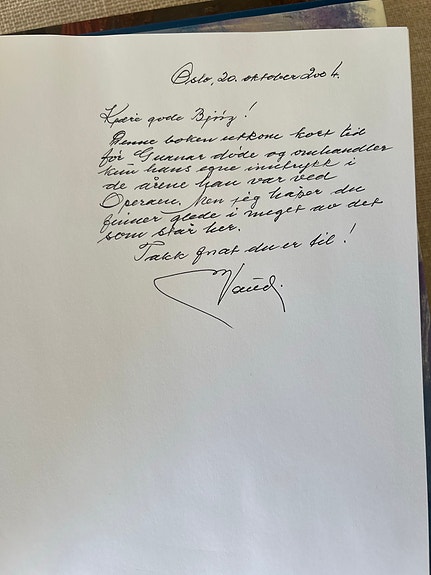 Oslo, 20. oktober 2004.
Kjære gode Bjørg!
Denne boken utkom kort tid
før Gunnar døde og omhandler
kun hans egne inntrykk i
de årene han var ved
Operaen. Men jeg håper du
finner glede i meget av det
som står her.
Takk for at du er til!